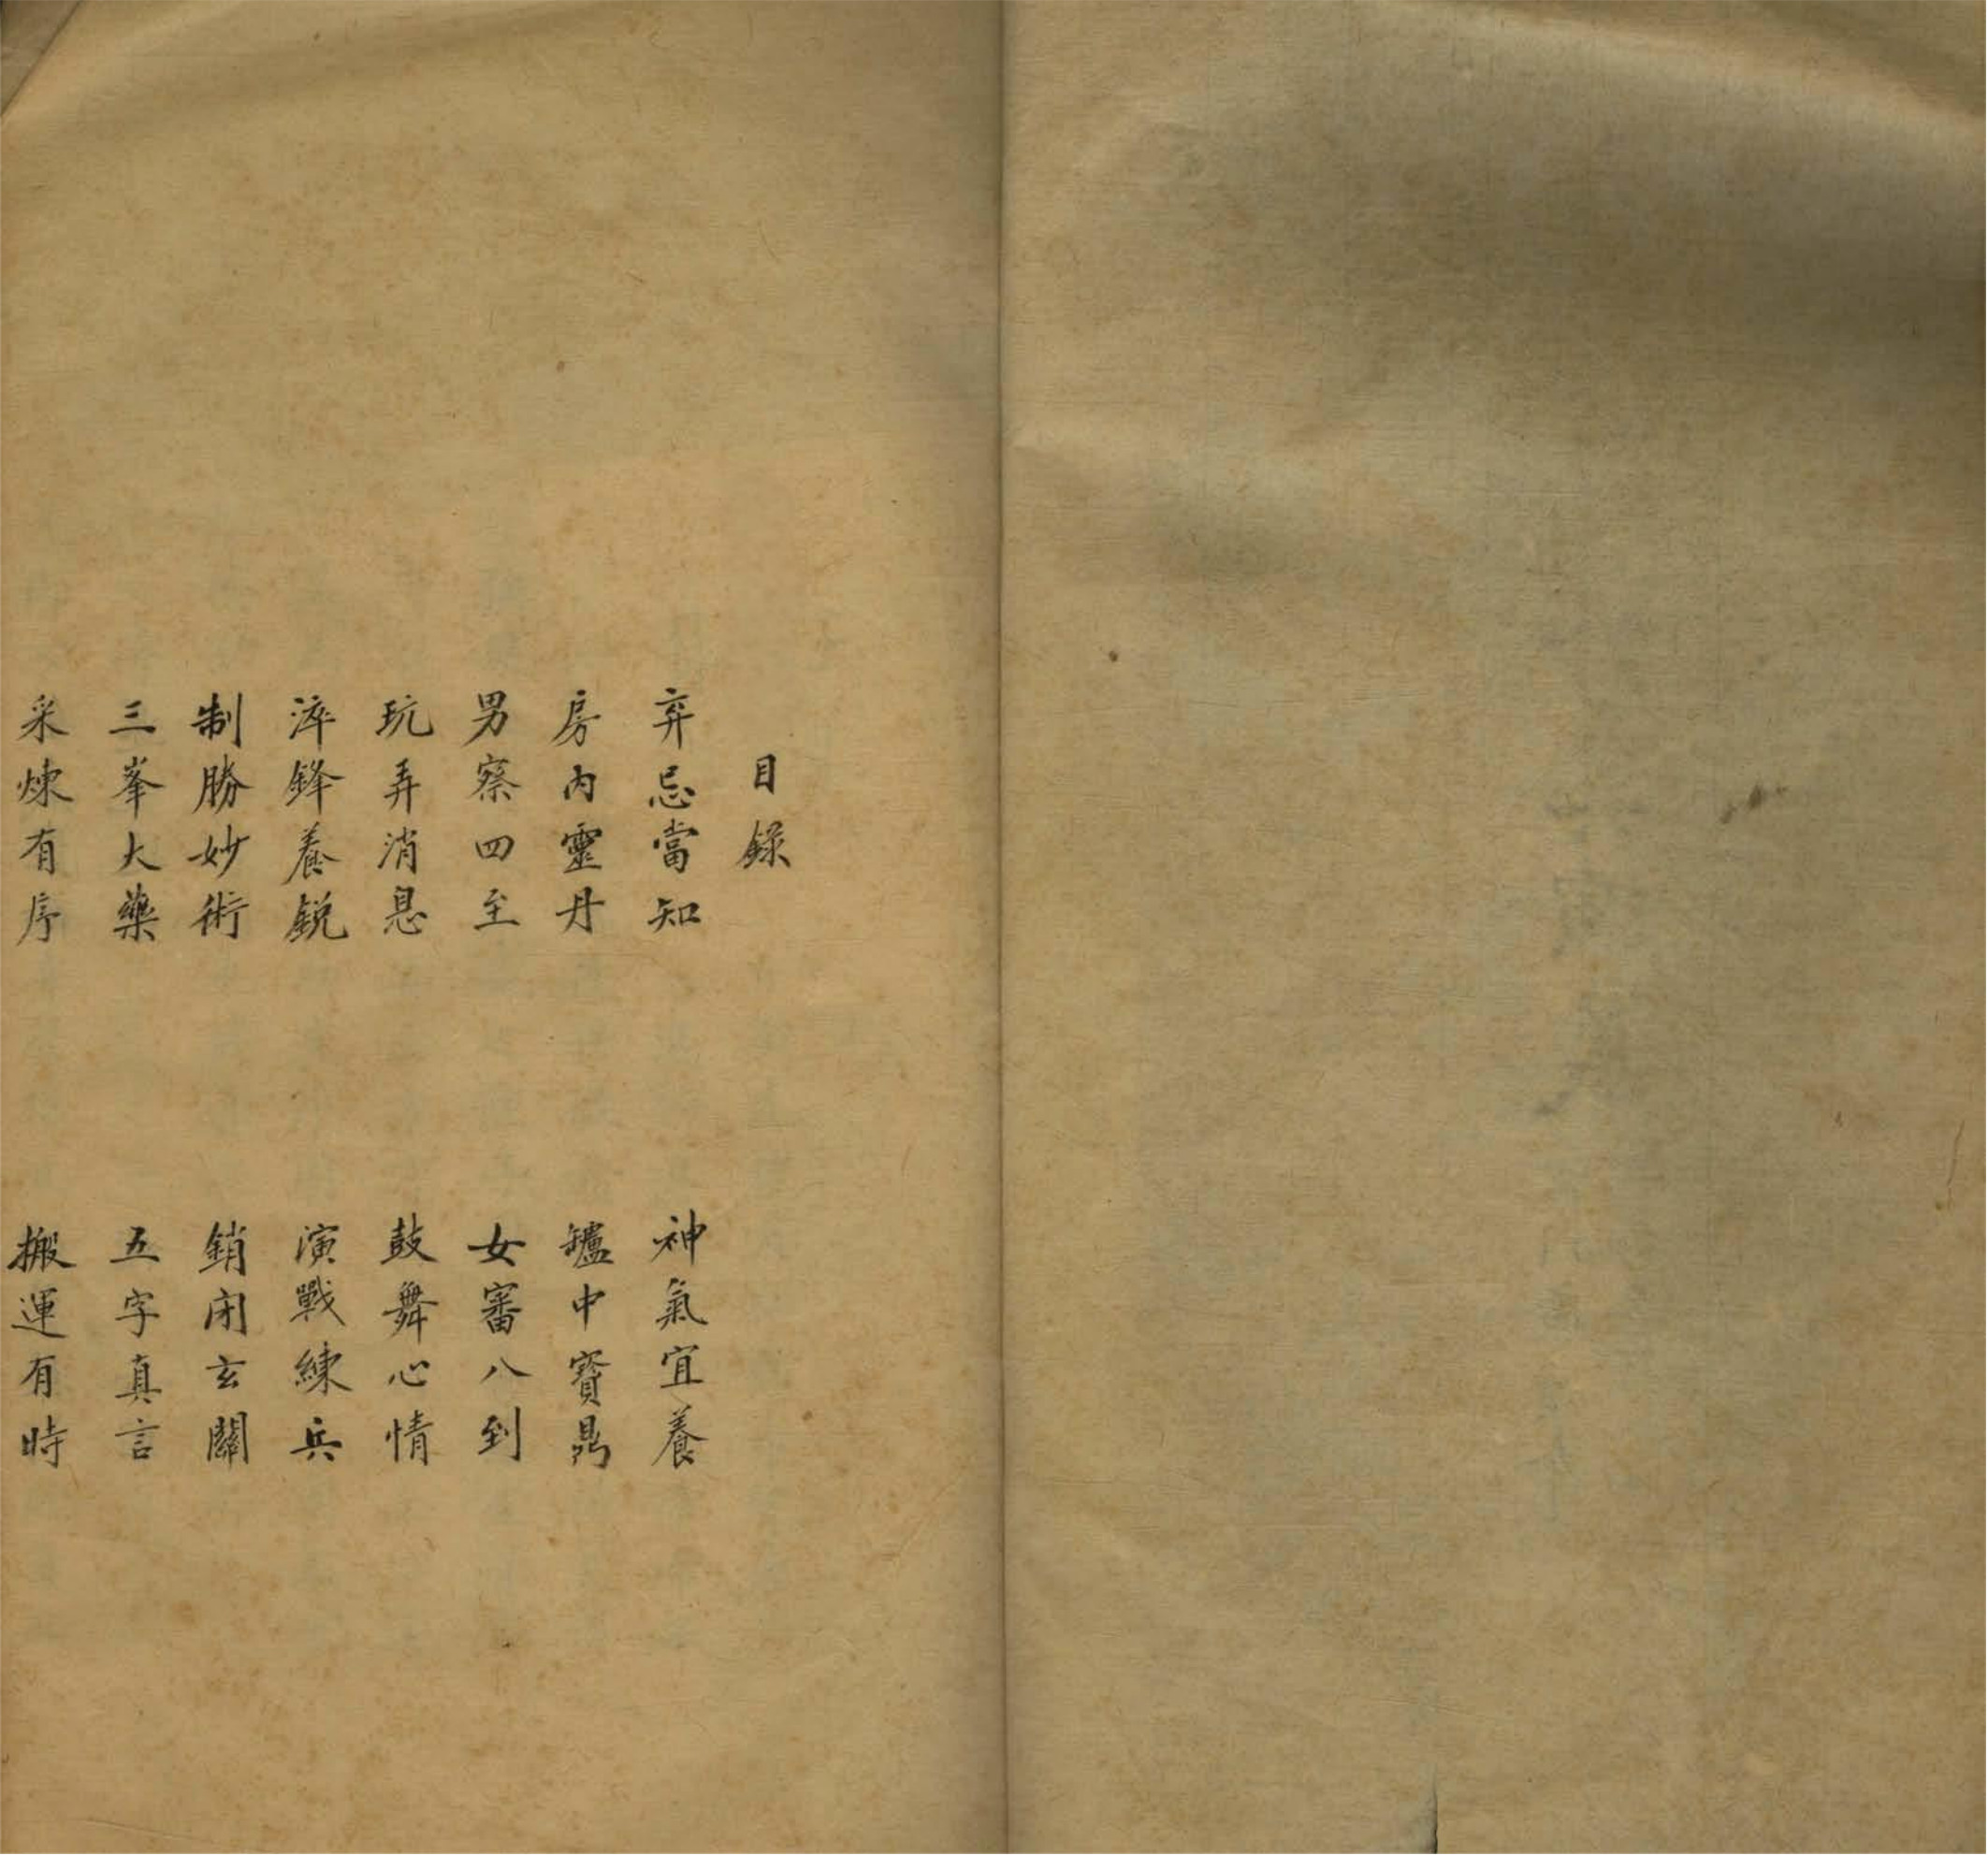 目錄
弃忌當知 神氣宜養
房內靈丹 罏中寶鼎
男察四至 女審八到
玩弄消息 鼓舞心情
淬鋒養銳 演戰練兵
制勝妙術 銷闭玄關
三峯大藥 五字真言
采煉有序 搬運有時